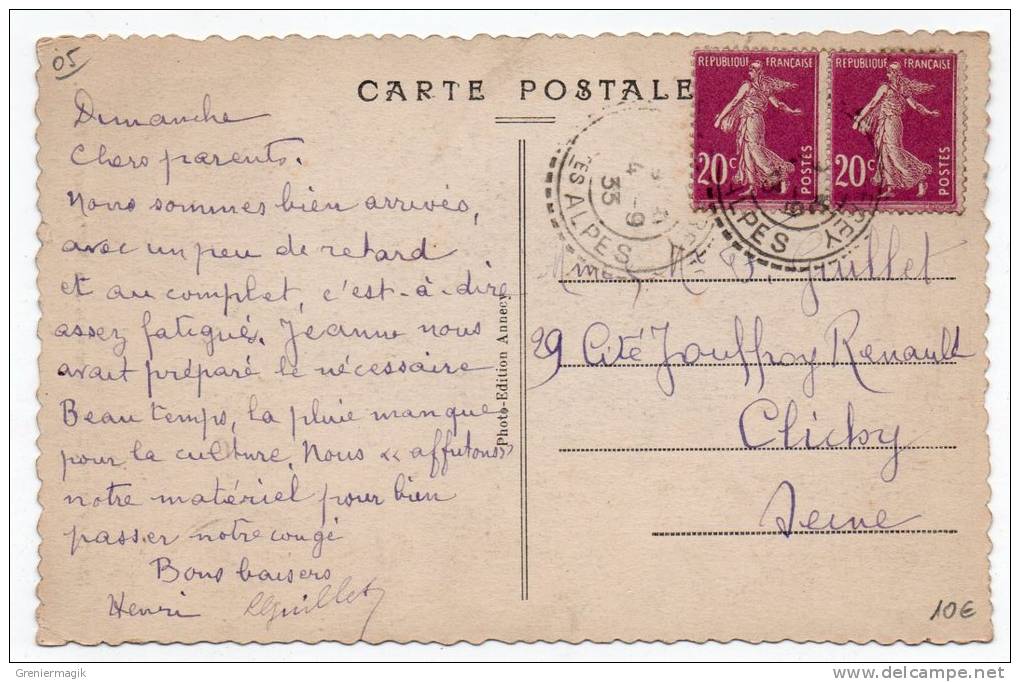 05
CARTE POSTALE
RÉPUBLIQUE FRANÇAISE
20c
POSTES
RÉPUBLIQUE FRANÇAISE
20c
POSTES
ES ALPES
4 -9
33
ALPES
Dimanche
Chers parents.
Nous sommes bien arrivés,
avec un peu de retard
et au complet, c'est-à-dire
assez fatigués. Jeanne nous
avait préparé le nécessaire
Beau temps, la pluie manque
pour la culture. Nous « affutons »
notre matériel pour bien
passer notre congé
Bons baisers
Henri
Photo-Edition Annecy
Guillet
29 Cité Jouffroy Renault
Clichy
Seine
10€
Greniermagik
delcampe.net